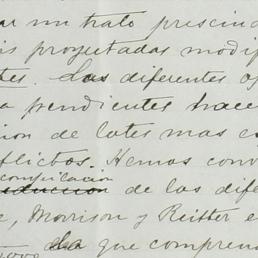 ar un trato prescind
is proyectadas modif
tes. Las diferentes op
a pendientes hace
ion de lotes mas es
flictos. Hemos conv
compilacion
de las dife
e, Morrison y Reitter e
que comprend